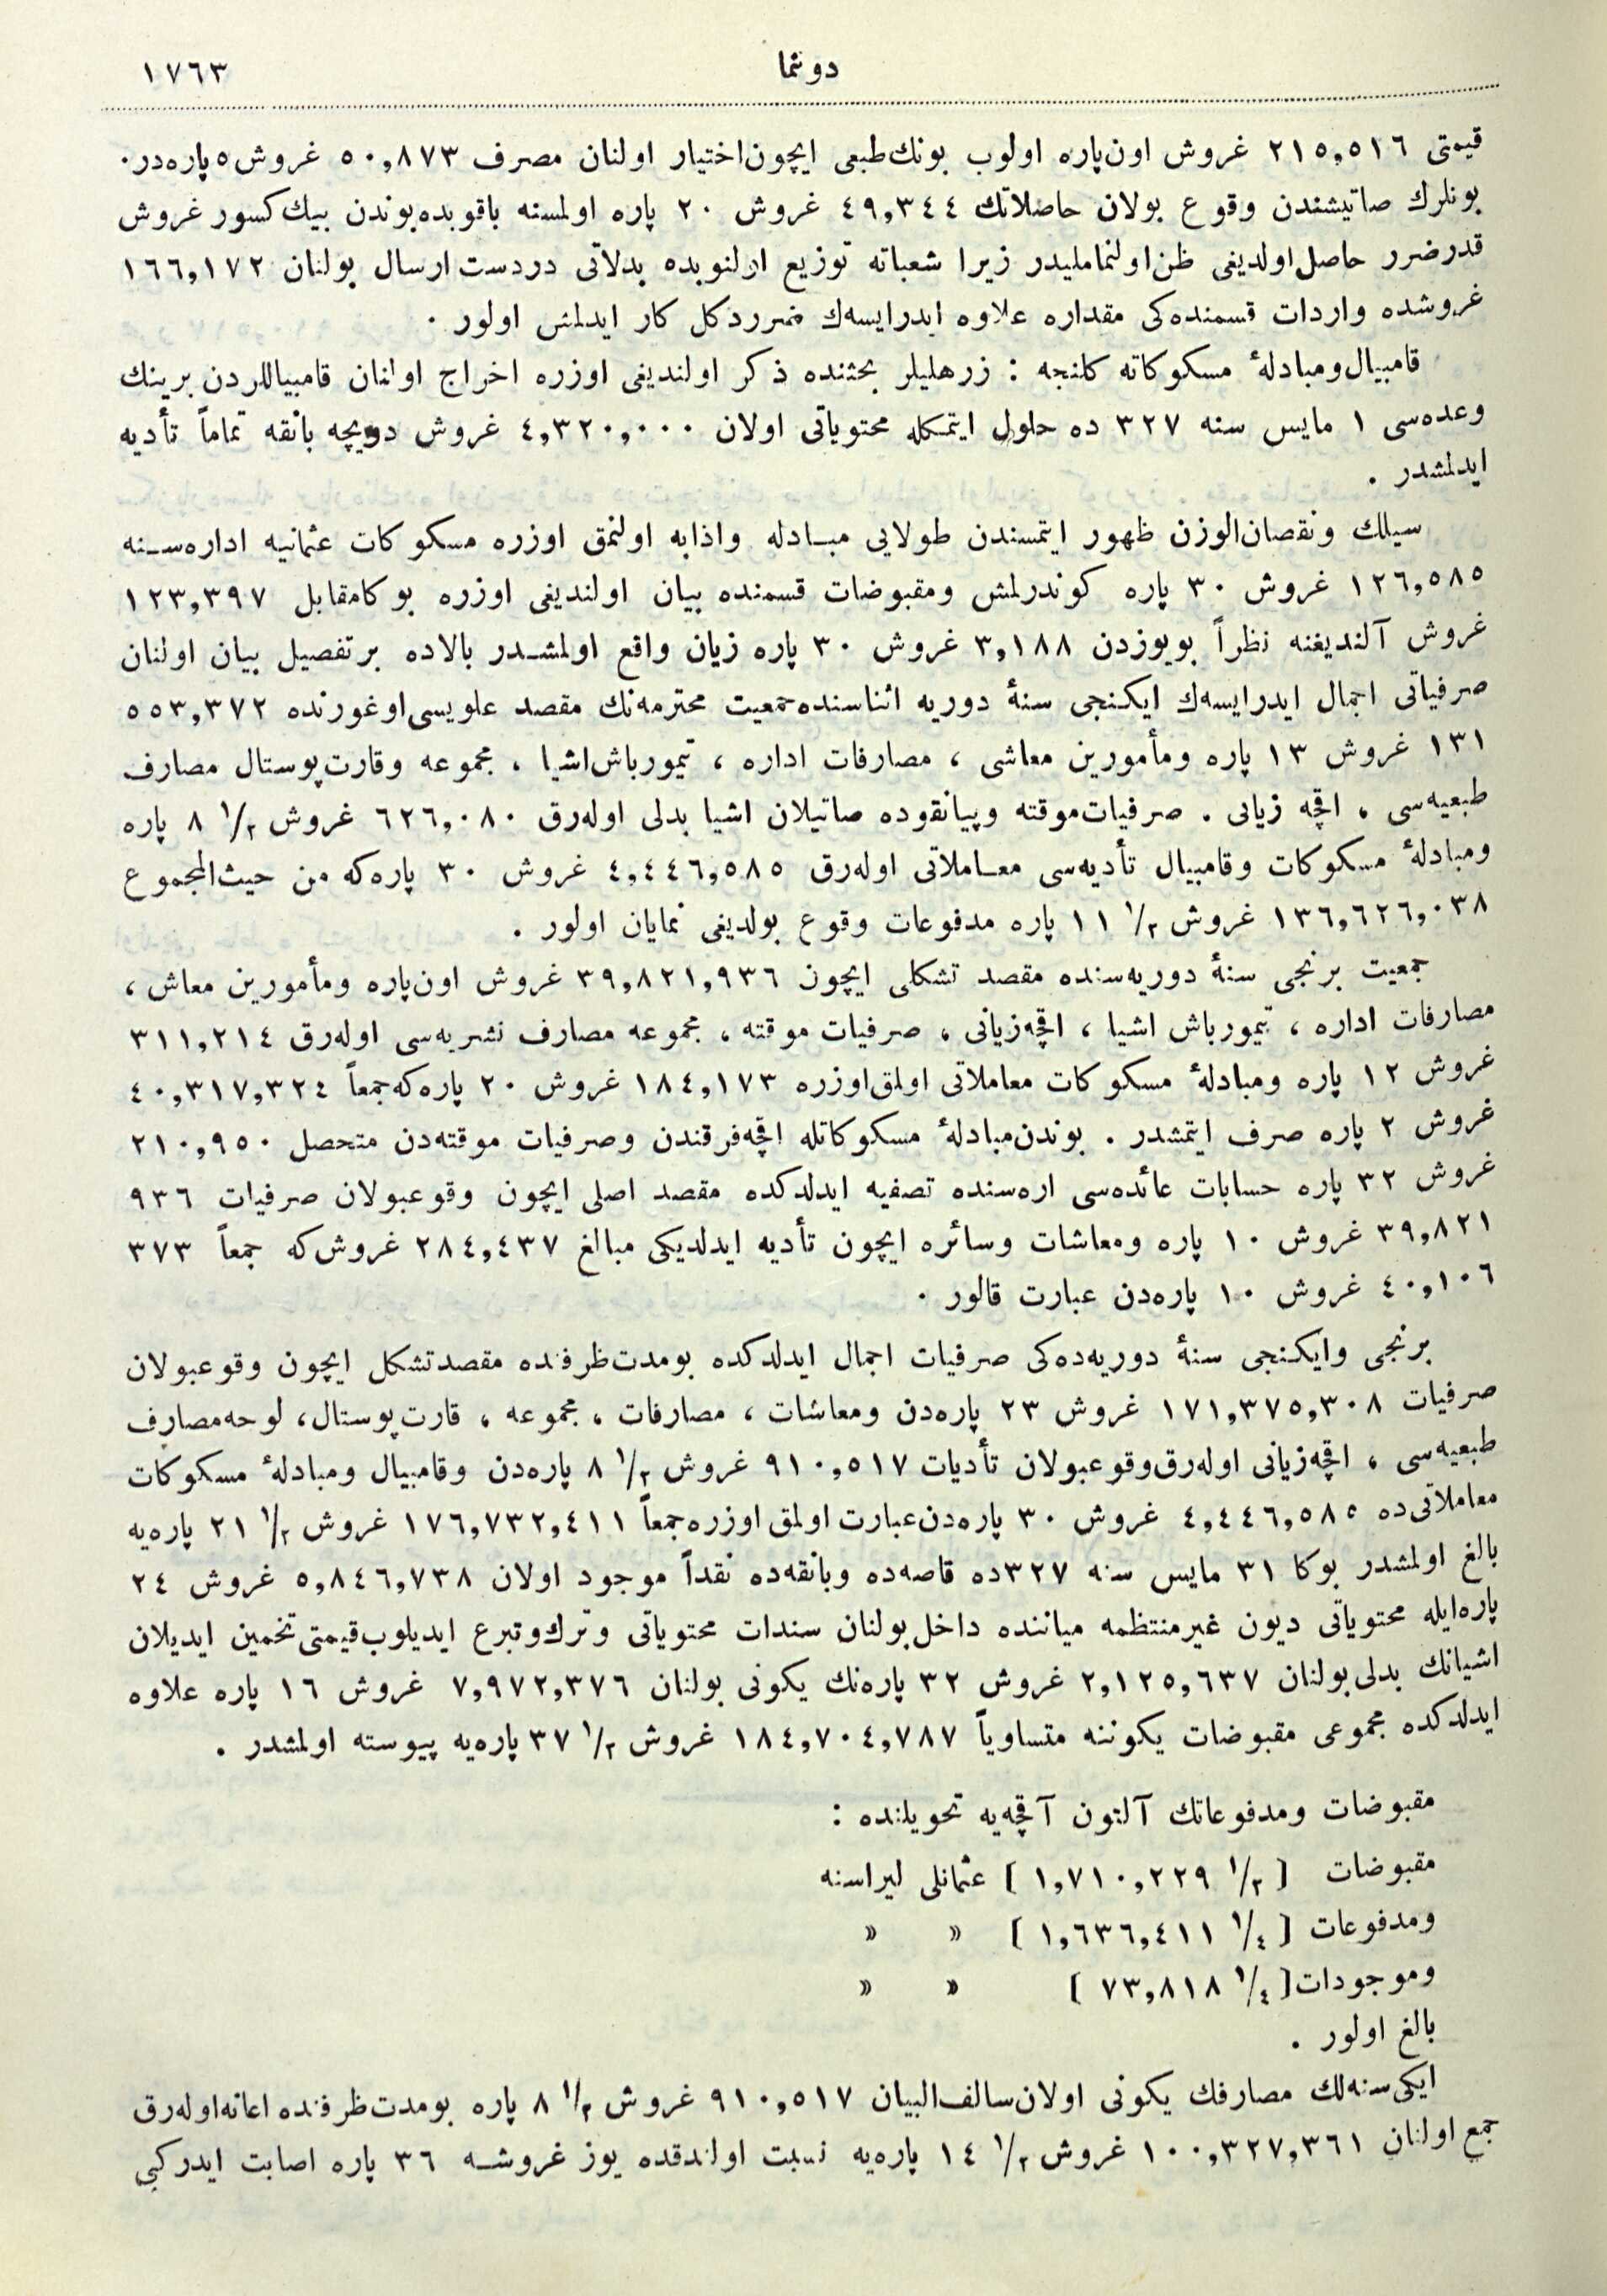 دونما
١٧٦٣
قیمتی ٢١٥,٥١٦ غروش اون‌پاره اولوب بونك طبعی ایچون اختیار اولنان مصرف ٥٠,٨٧٣ غروش ٥ پاره‌در.
بونلرك صاتیشندن وقوع بولان حاصلاتك ٤٩,٣٤٤ غروش ٢٠ پاره اولمسنه باقوبده بوندن بیك كسور غروش
قدر ضرر حاصل اولدیغی ظن اولنماملیدر زیرا شعباته توزیع اولنوبده بدلاتی دردست ارسال بولنان ١٦٦,١٧٢
غروشده واردات قسمنده‌كی مقداره علاوه ایدرایسه‌ك ضرر دكل كار ایدلمش اولور .
قامبیال ومبادلۀ مسكوكاته كلنجه : زرهلیلر بحثنده ذكر اولندیغی اوزره اخراج اولنان قامبیاللردن برینك
وعده‌سی ١ مایس سنه ٣٢٧ ده حلول ایتمكله محتویاتی اولان ٤,٣٢٠,٠٠٠ غروش دویچه بانقه تماماً تأدیه
ایدلمشدر .
سیلك ونقصان‌الوزن ظهور ایتمسندن طولایی مبادله واذابه اولنمق اوزره مسكوكات عثمانیه اداره‌سنه
١٢٦,٥٨٥ غروش ٣٠ پاره كوندرلمش ومقبوضات قسمنده بیان اولندیغی اوزره بوكا مقابل ١٢٣,٣٩٧
غروش آلندیغنه نظراً بویوزدن ٣,١٨٨ غروش ٣٠ پاره زیان واقع اولمشدر بالاده برتفصیل بیان اولنان
صرفیاتی اجمال ایدرایسه‌ك ایكنجی سنۀ دوریه اثناسنده جمعیت محترمه‌نك مقصد علویسی اوغورنده ٥٥٣,٣٧٢
١٣١ غروش ١٣ پاره ومأمورین معاشی ، مصارفات اداره ، تیمورباش اشیا ، مجموعه وقارت‌پوستال مصارف
طبعیه‌سی ، اقچه زیانی . صرفیات موقته وپیانقوده صاتیلان اشیا بدلی اوله‌رق ٦٢٦,٠٨٠ غروش ١/٢ ٨ پاره
ومبادلۀ مسكوكات وقامبیال تأدیه‌سی معاملاتی اوله‌رق ٤,٤٤٦,٥٨٥ غروش ٣٠ پاره‌كه من حیث‌المجموع
١٣٦,٦٢٦,٠٣٨ غروش ١/٢ ١١ پاره مدفوعات وقوع بولدیغی نمایان اولور .
جمعیت برنجی سنۀ دوریه‌سنده مقصد تشكلی ایچون ٣٩,٨٢١,٩٣٦ غروش اون‌پاره ومأمورین معاش ،
مصارفات اداره ، تیمورباش اشیا ، اقچه‌زیانی ، صرفیات موقته ، مجموعه مصارف نشریه‌سی اوله‌رق ٣١١,٢١٤
غروش ١٢ پاره ومبادلۀ مسكوكات معاملاتی اولمق اوزره ١٨٤,١٧٣ غروش ٢٠ پاره‌كه جمعاً ٤٠,٣١٧,٣٢٤
غروش ٢ پاره صرف ایتمشدر . بوندن مبادلۀ مسكوكاتله اقچه‌فرقندن وصرفیات موقته‌دن متحصل ٢١٠,٩٥٠
غروش ٣٢ پاره حسابات عائده‌سی اره‌سنده تصفیه ایدلدكده مقصد اصلی ایچون وقوعبولان صرفیات ٩٣٦
٣٩,٨٢١ غروش ١٠ پاره ومعاشات وسائره ایچون تأدیه ایدلدیكی مبالغ ٢٨٤,٤٣٧ غروش‌كه جمعاً ٣٧٣
٤٠,١٠٦ غروش ١٠ پاره‌دن عبارت قالور .
برنجی وایكنجی سنۀ دوریه‌ده‌كی صرفیات اجمال ایدلدكده بومدت ظرفنده مقصد تشكل ایچون وقوعبولان
صرفیات ١٧١,٣٧٥,٣٠٨ غروش ٢٣ پاره‌دن ومعاشات ، مصارفات ، مجموعه ، قارت‌پوستال، لوحه مصارف
طبعیه‌سی ، اقچه‌زیانی اوله‌رق وقوعبولان تأدیات ٩١٠,٥١٧ غروش ١/٢ ٨ پاره‌دن وقامبیال ومبادلۀ مسكوكات
معاملاتی‌ده ٤,٤٤٦,٥٨٥ غروش ٣٠ پاره‌دن عبارت اولمق اوزره جمعاً ١٧٦,٧٣٢,٤١١ غروش ١/٢ ٢١ پاره‌یه
بالغ اولمشدر بوكا ٣١ مایس سنه ٣٢٧ده قاصه‌ده وبانقه‌ده نقداً موجود اولان ٥,٨٤٦,٧٣٨ غروش ٢٤
پاره‌ایله محتویاتی دیون غیرمنتظمه میاننده داخل بولنان سندات محتویاتی وترك‌وتبرع ایدیلوب قیمتی تخمین ایدیلان
اشیانك بدلی بولنان ٢,١٢٥,٦٣٧ غروش ٣٢ پاره‌نك یكونی بولنان ٧,٩٧٢,٣٧٦ غروش ١٦ پاره علاوه
ایدلدكده مجموعی مقبوضات یكوننه متساویاً ١٨٤,٧٠٤,٧٨٧ غروش ١/٢ ٣٧ پاره‌یه پیوسته اولمشدر .
مقبوضات ومدفوعاتك آلتون آقچه‌یه تحویلنده :
مقبوضات [ ١/٢ ١,٧١٠,٢٢٩ ] عثمانلی لیراسنه
ومدفوعات [ ١/٤ ١,٦٣٦,٤١١ ] » »
وموجودات [ ١/٤ ٧٣,٨١٨ ] » »
بالغ اولور .
ایكی سنه‌لك مصارفك یكونی اولان سالف‌البیان ٩١٠,٥١٧ غروش ١/٢ ٨ پاره بومدت ظرفنده اعانه اوله‌رق
جمع اولنان ١٠٠,٣٢٧,٣٦١ غروش ١/٢ ١٤ پاره‌یه نسبت اولندقده یوز غروشه ٣٦ پاره اصابت ایدركه